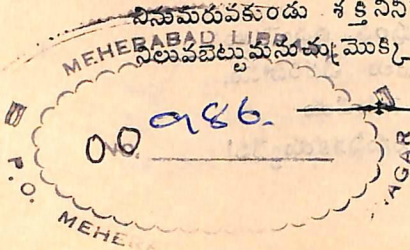 నినుమరువకుండు శక్తినిని
నిలువబెట్టుమనుచ్చు మొక్కి
MEHERABAD LIBR
00 986.
No.
P.O. MEHE
AGAR